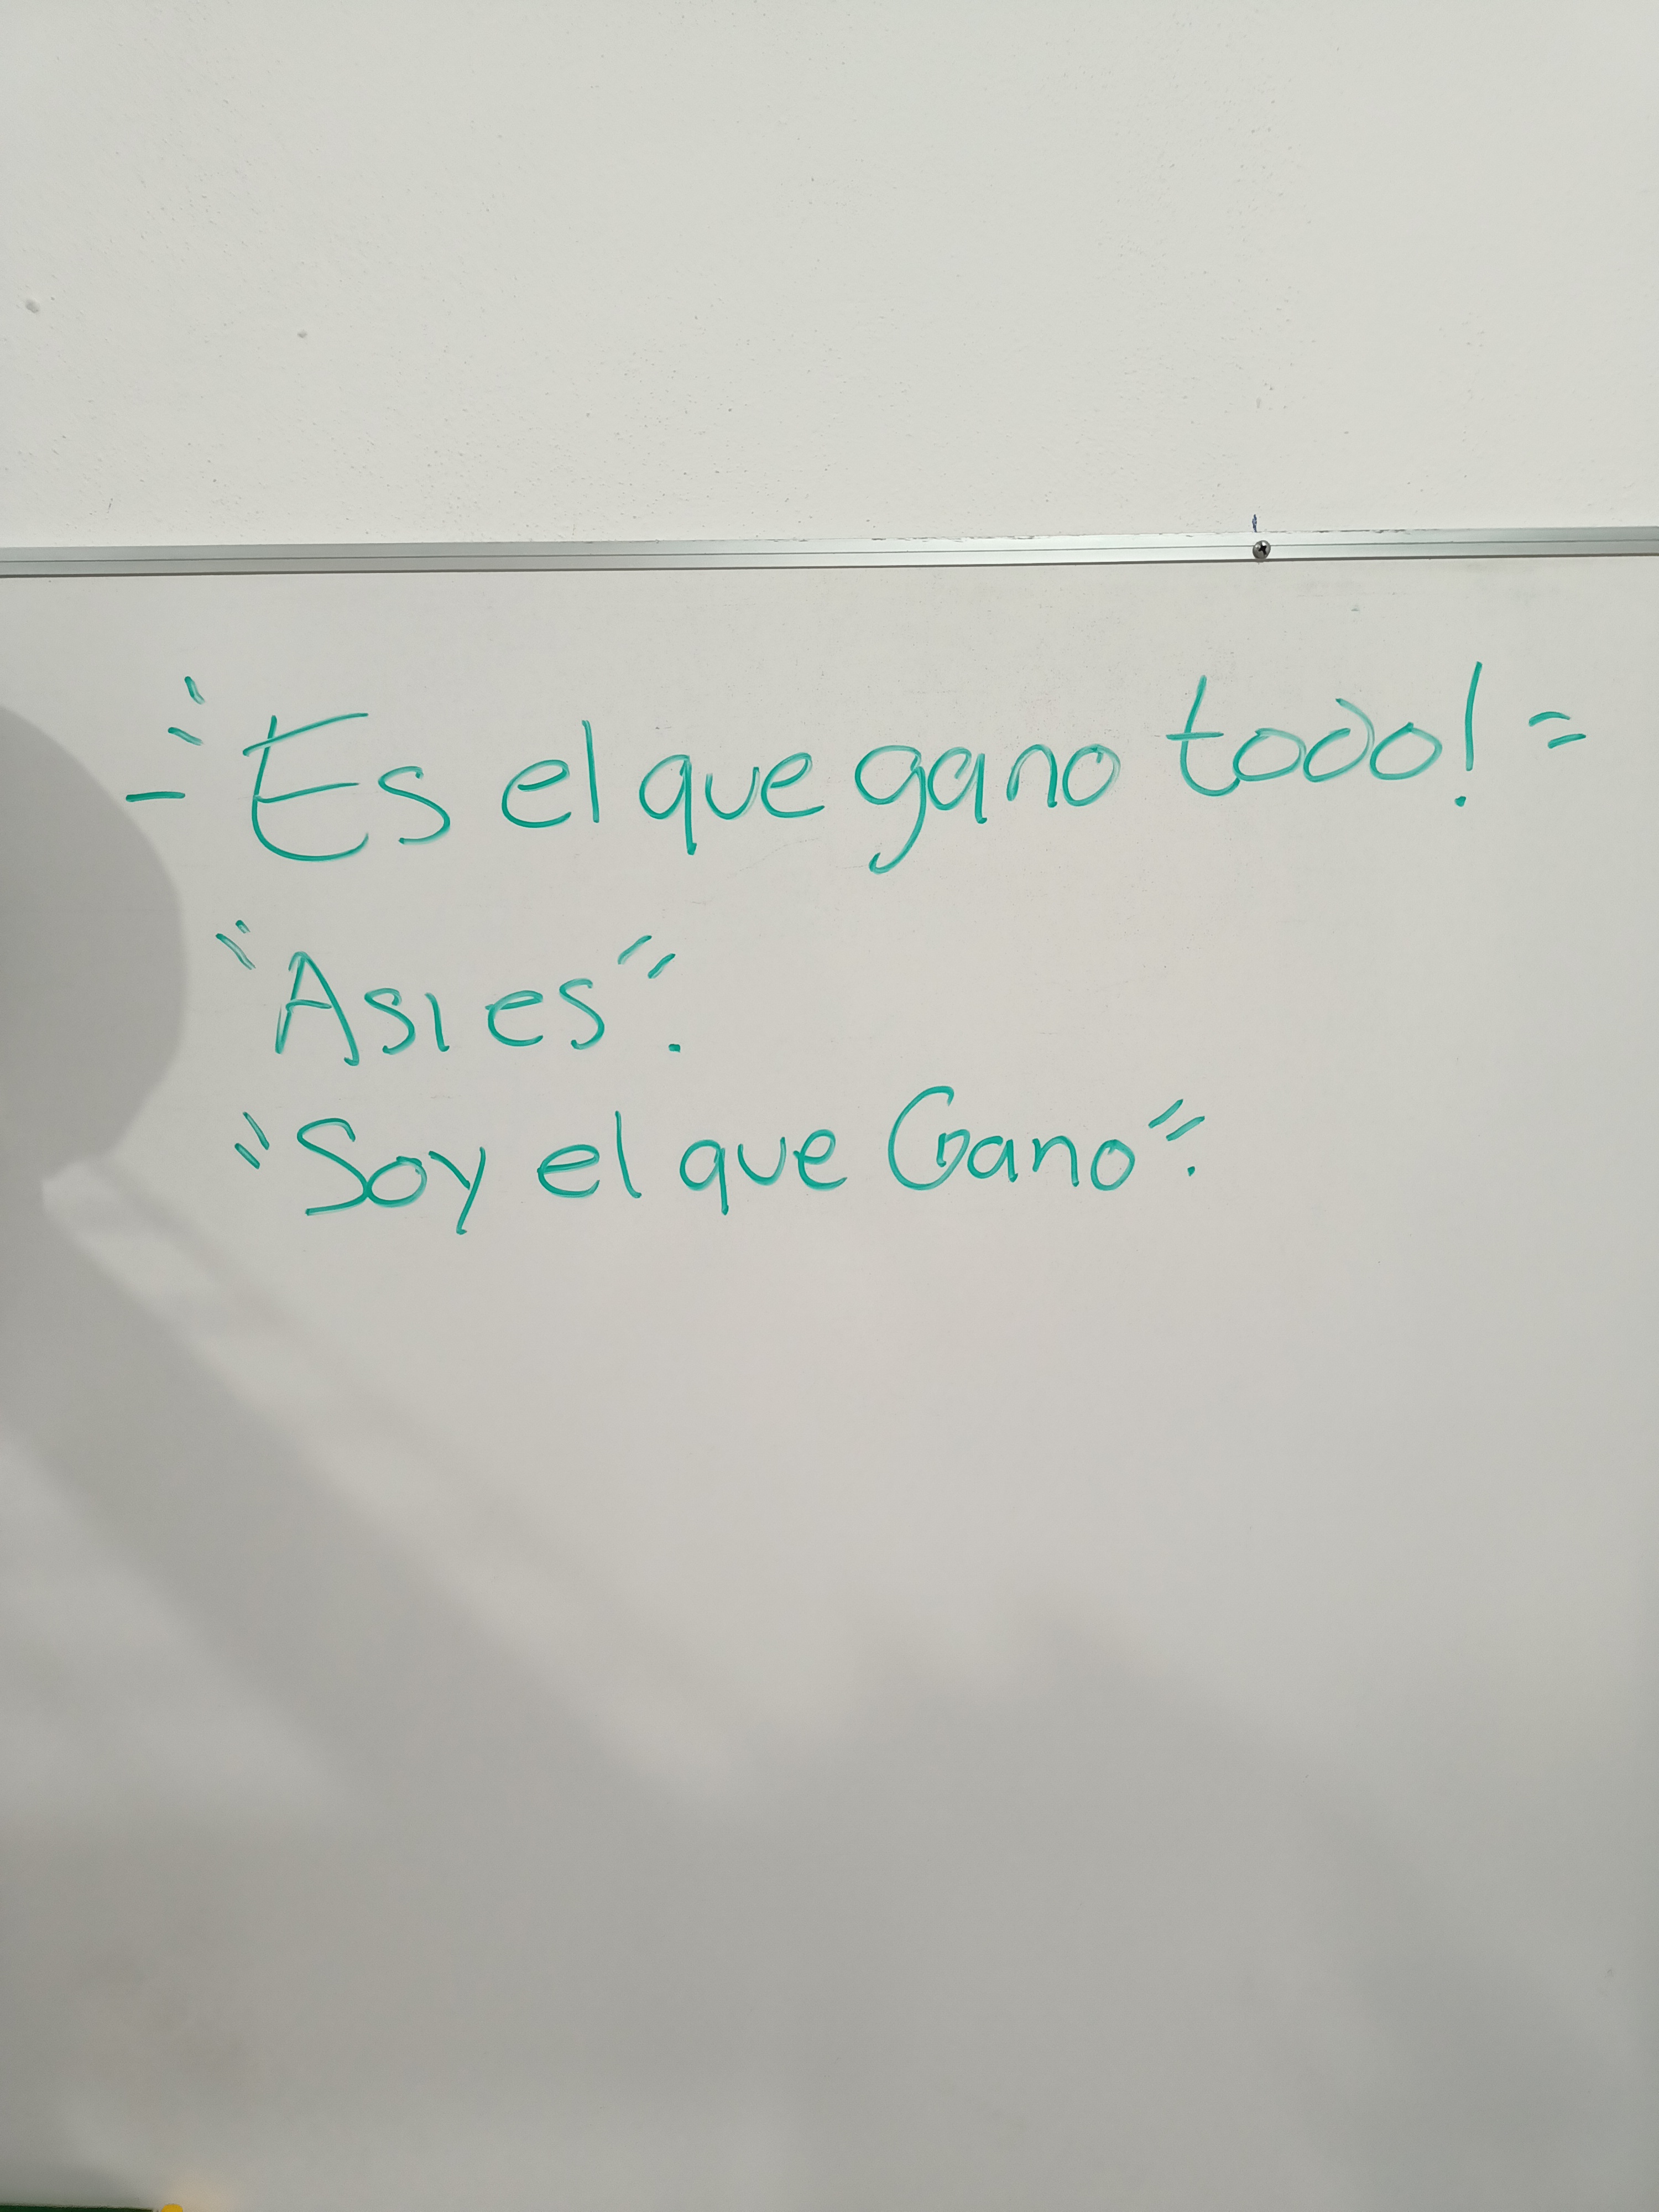 - "Es el que gano todo!"
"Asi es".
"Soy el que Gano".